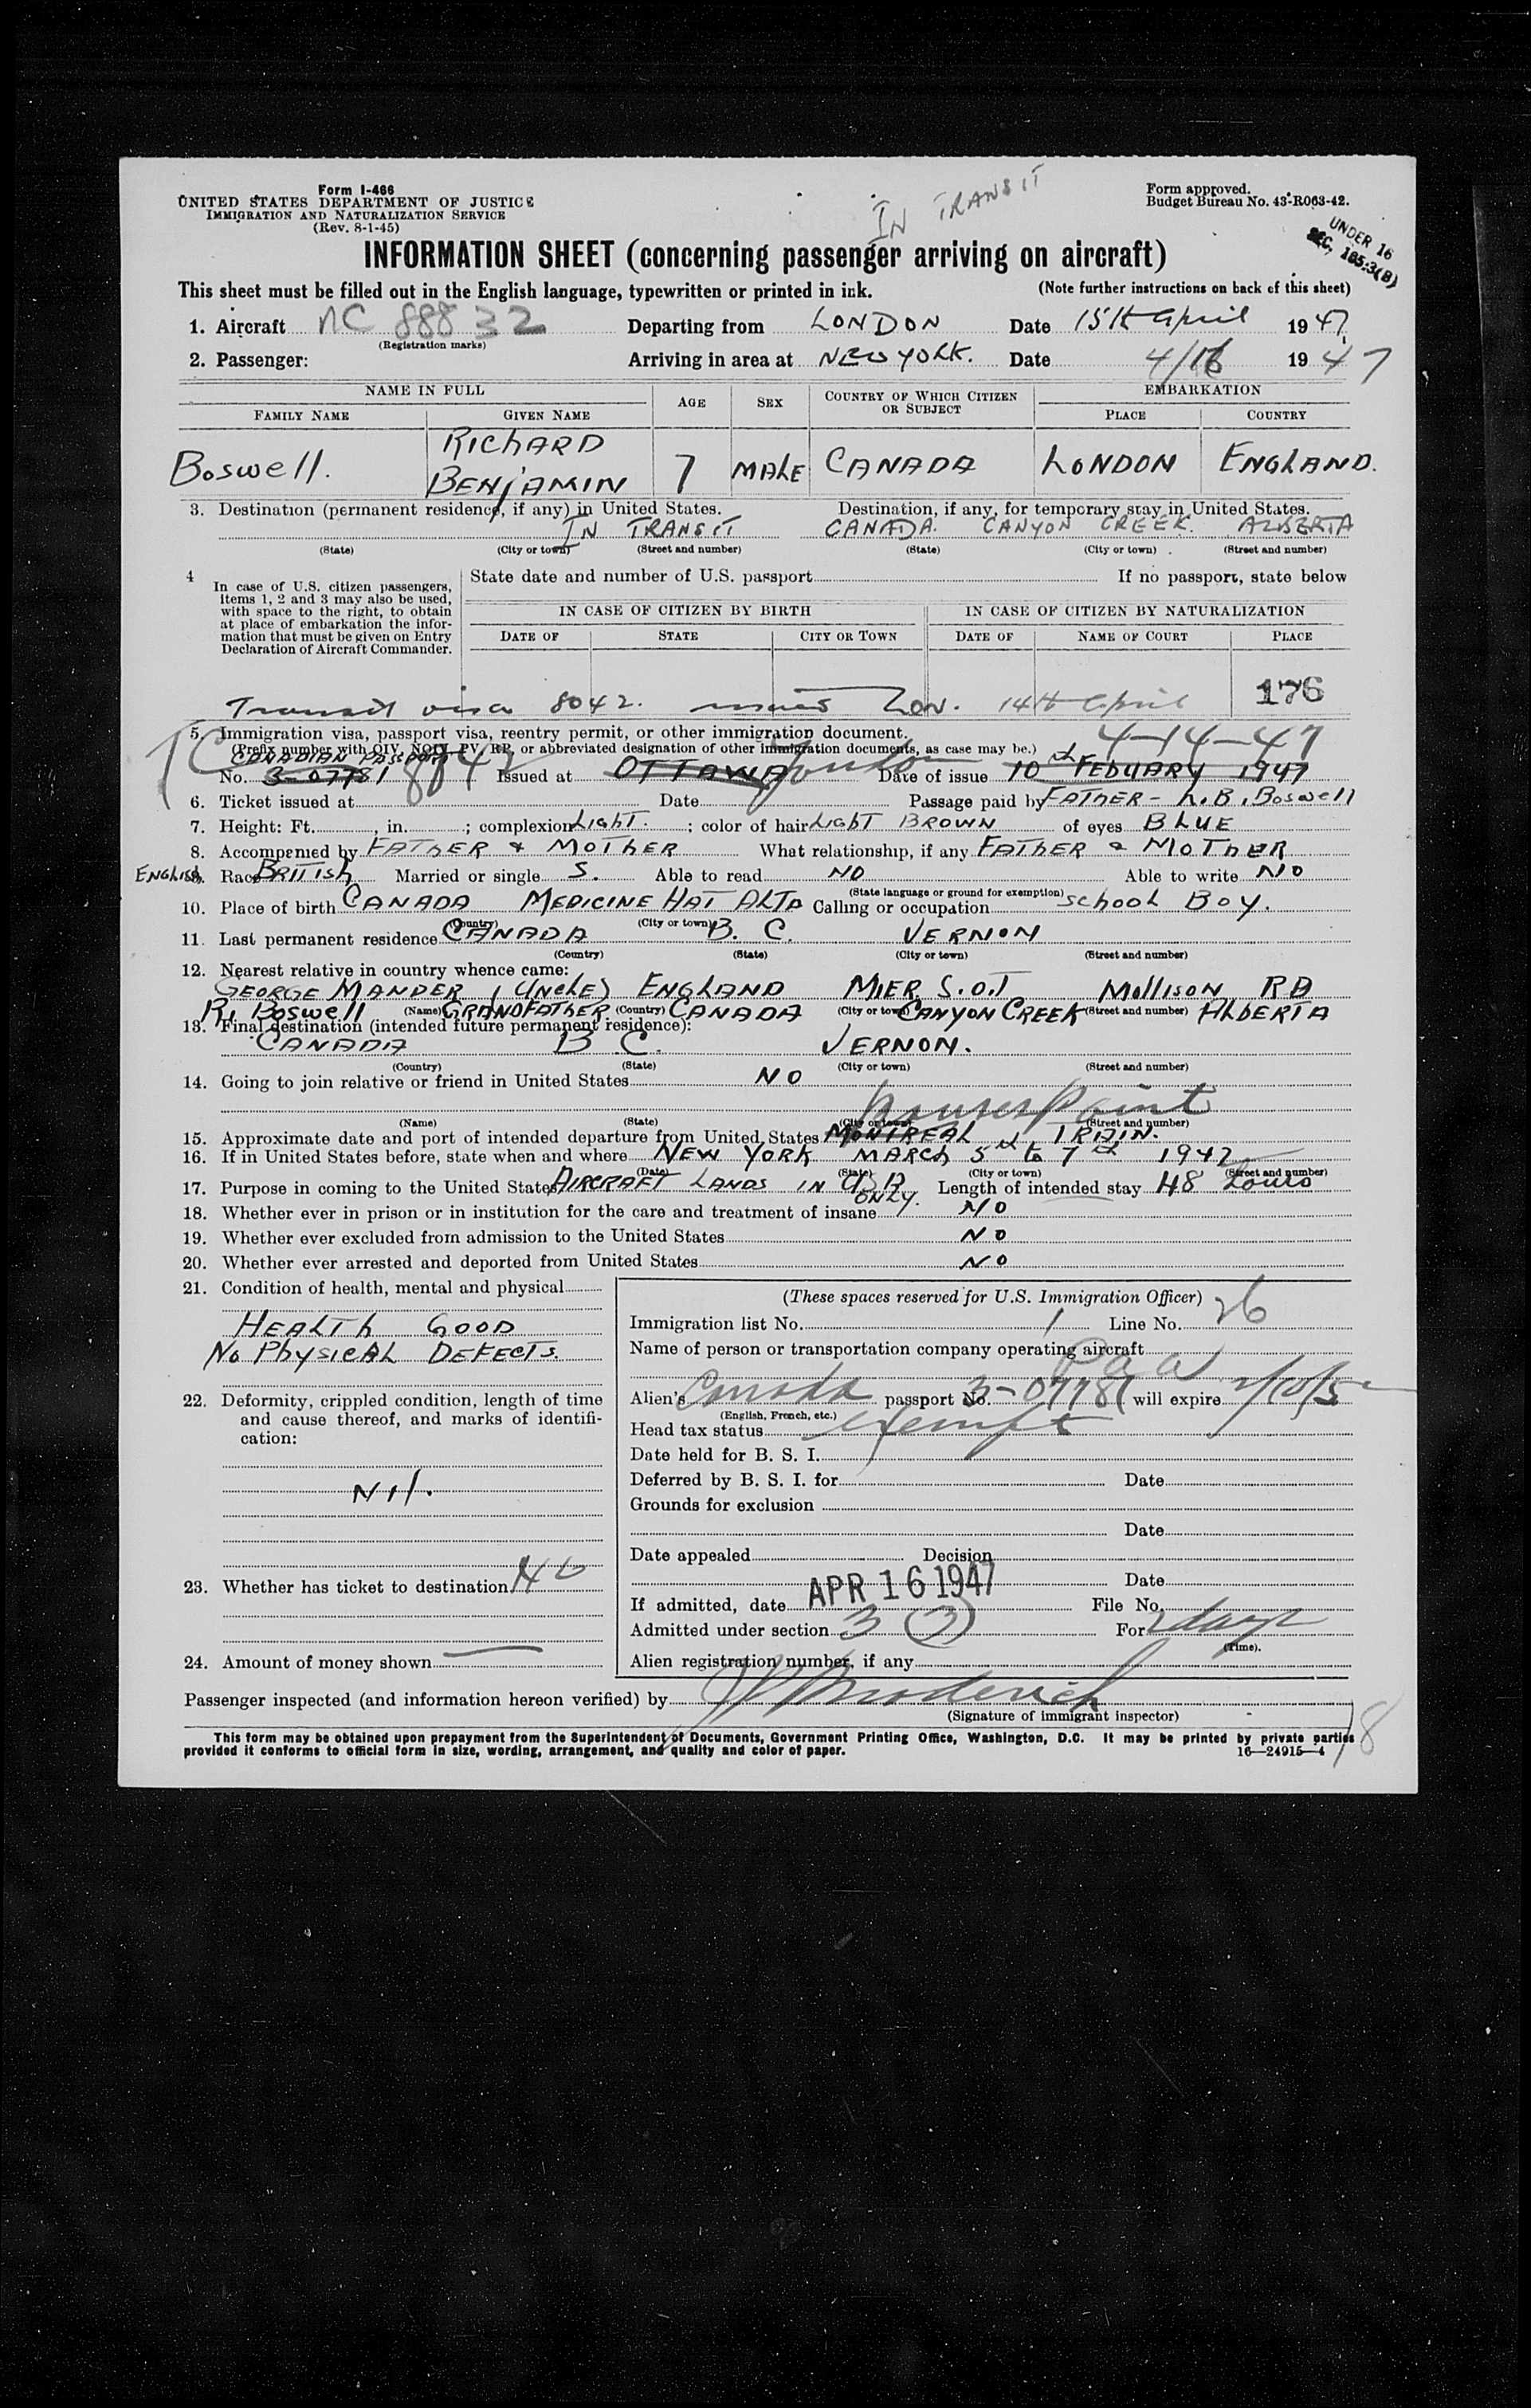 Form I-466
UNITED STATES DEPARTMENT OF JUSTICE
IMMIGRATION AND NATURALIZATION SERVICE
(Rev. 8-1-45)
IN TRANSIT
Form approved.
Budget Bureau No. 43-R063-42.
UNDER 16
SEC. 165.3(B)
INFORMATION SHEET (concerning passenger arriving on aircraft)
This sheet must be filled out in the English language, typewritten or printed in ink. (Note further instructions on back of this sheet)
1. Aircraft NC 88832 Departing from LONDON Date 15th April 1947
(Registration marks)
2. Passenger: Arriving in area at NEW YORK. Date 4/16 1947
NAME IN FULL AGE SEX COUNTRY OF WHICH CITIZEN OR SUBJECT EMBARKATION
FAMILY NAME GIVEN NAME PLACE COUNTRY
Boswell. RICHARD BENJAMIN 7 MALE CANADA LONDON ENGLAND.
3. Destination (permanent residence, if any) in United States. Destination, if any, for temporary stay in United States.
IN TRANSIT CANADA. CANYON CREEK. ALBERTA
(State) (City or town) (Street and number) (State) (City or town) (Street and number)
4 In case of U.S. citizen passengers, items 1, 2 and 3 may also be used, with space to the right, to obtain at place of embarkation the information that must be given on Entry Declaration of Aircraft Commander.
State date and number of U.S. passport If no passport, state below
IN CASE OF CITIZEN BY BIRTH IN CASE OF CITIZEN BY NATURALIZATION
DATE OF STATE CITY OR TOWN DATE OF NAME OF COURT PLACE
176
Transit visa 8042. Lon. 14th April
5. Immigration visa, passport visa, reentry permit, or other immigration document. 4-14-47
(Prefix number with QIV, NQIV, PV, RP, or abbreviated designation of other immigration documents, as case may be.)
CANADIAN PASSPORT
No. 3-07781 8042 Issued at OTTAWA London Date of issue 10th FEBUARY 1947
6. Ticket issued at Date Passage paid by FATHER - L.B. Boswell
7. Height: Ft. , in. ; complexion LIGHT. ; color of hair LIGHT BROWN of eyes BLUE
8. Accompanied by FATHER & MOTHER What relationship, if any FATHER & MOTHER
ENGLISH
9. Race BRITISH Married or single S. Able to read NO Able to write NO
(State language or ground for exemption)
10. Place of birth CANADA MEDICINE HAT ALTA Calling or occupation school Boy.
(Country) (City or town)
11. Last permanent residence CANADA B. C. VERNON
(Country) (State) (City or town) (Street and number)
12. Nearest relative in country whence came:
GEORGE MANDER (UNCLE) ENGLAND Mollison RD
R. Boswell GRANDFATHER CANADA CANYON CREEK ALBERTA
(Name) (Country) (City or town) (Street and number)
13. Final destination (intended future permanent residence):
CANADA B.C. VERNON.
(Country) (State) (City or town) (Street and number)
14. Going to join relative or friend in United States NO
Rouses Point
(Name) (State) (City or town) (Street and number)
15. Approximate date and port of intended departure from United States MONTREAL TRAIN.
16. If in United States before, state when and where NEW YORK MARCH 5th to 7th 1947
(Date) (State) (City or town) (Street and number)
17. Purpose in coming to the United States AIRCRAFT LANDS IN USA ONLY. Length of intended stay 48 hours
18. Whether ever in prison or in institution for the care and treatment of insane NO
19. Whether ever excluded from admission to the United States NO
20. Whether ever arrested and deported from United States NO
21. Condition of health, mental and physical
HEALTH GOOD
NO PHYSICAL DEFECTS.
22. Deformity, crippled condition, length of time and cause thereof, and marks of identification:
Nil.
23. Whether has ticket to destination No
24. Amount of money shown
(These spaces reserved for U.S. Immigration Officer)
Immigration list No. 1 Line No. 26
Name of person or transportation company operating aircraft
P a a
Alien's Canada passport No. 3-07781 will expire 2/10/52
(English, French, etc.)
Head tax status exempt
Date held for B. S. I.
Deferred by B. S. I. for Date
Grounds for exclusion
Date
Date appealed Decision
Date
If admitted, date APR 16 1947 File No.
Admitted under section 3 (3) For 2 days
(Time).
Alien registration number, if any
Passenger inspected (and information hereon verified) by
(Signature of immigrant inspector)
This form may be obtained upon prepayment from the Superintendent of Documents, Government Printing Office, Washington, D.C. It may be printed by private parties
provided it conforms to official form in size, wording, arrangement, and quality and color of paper. 16—24915-4